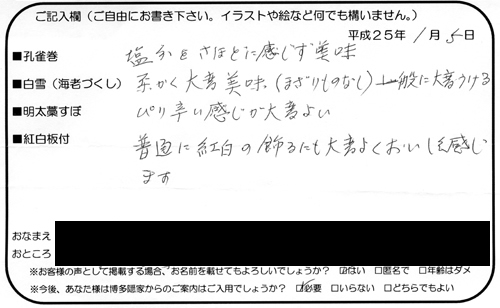 ご記入欄（ご自由にお書き下さい。イラストや絵など何でも構いません。）
平成25年 1月 5日
■孔雀巻 塩分をさほどに感じず美味
■白雪（海老づくし） 柔かく大変美味。（まざりものなし）一般に大変うける
■明太藁すぼ ぴり辛い感じが大変よい
■紅白板付 普通に紅白の飾るにも大変よくおいしく感じ
ます
おなまえ
おところ
※お客様の声として掲載する場合、お名前を載せてもよろしいでしょうか？ ☑はい □匿名で □年齢はダメ
※今後、あなた様は博多隠家からのご案内はご入用でしょうか？ ☑必要 □いらない □どちらでもよい